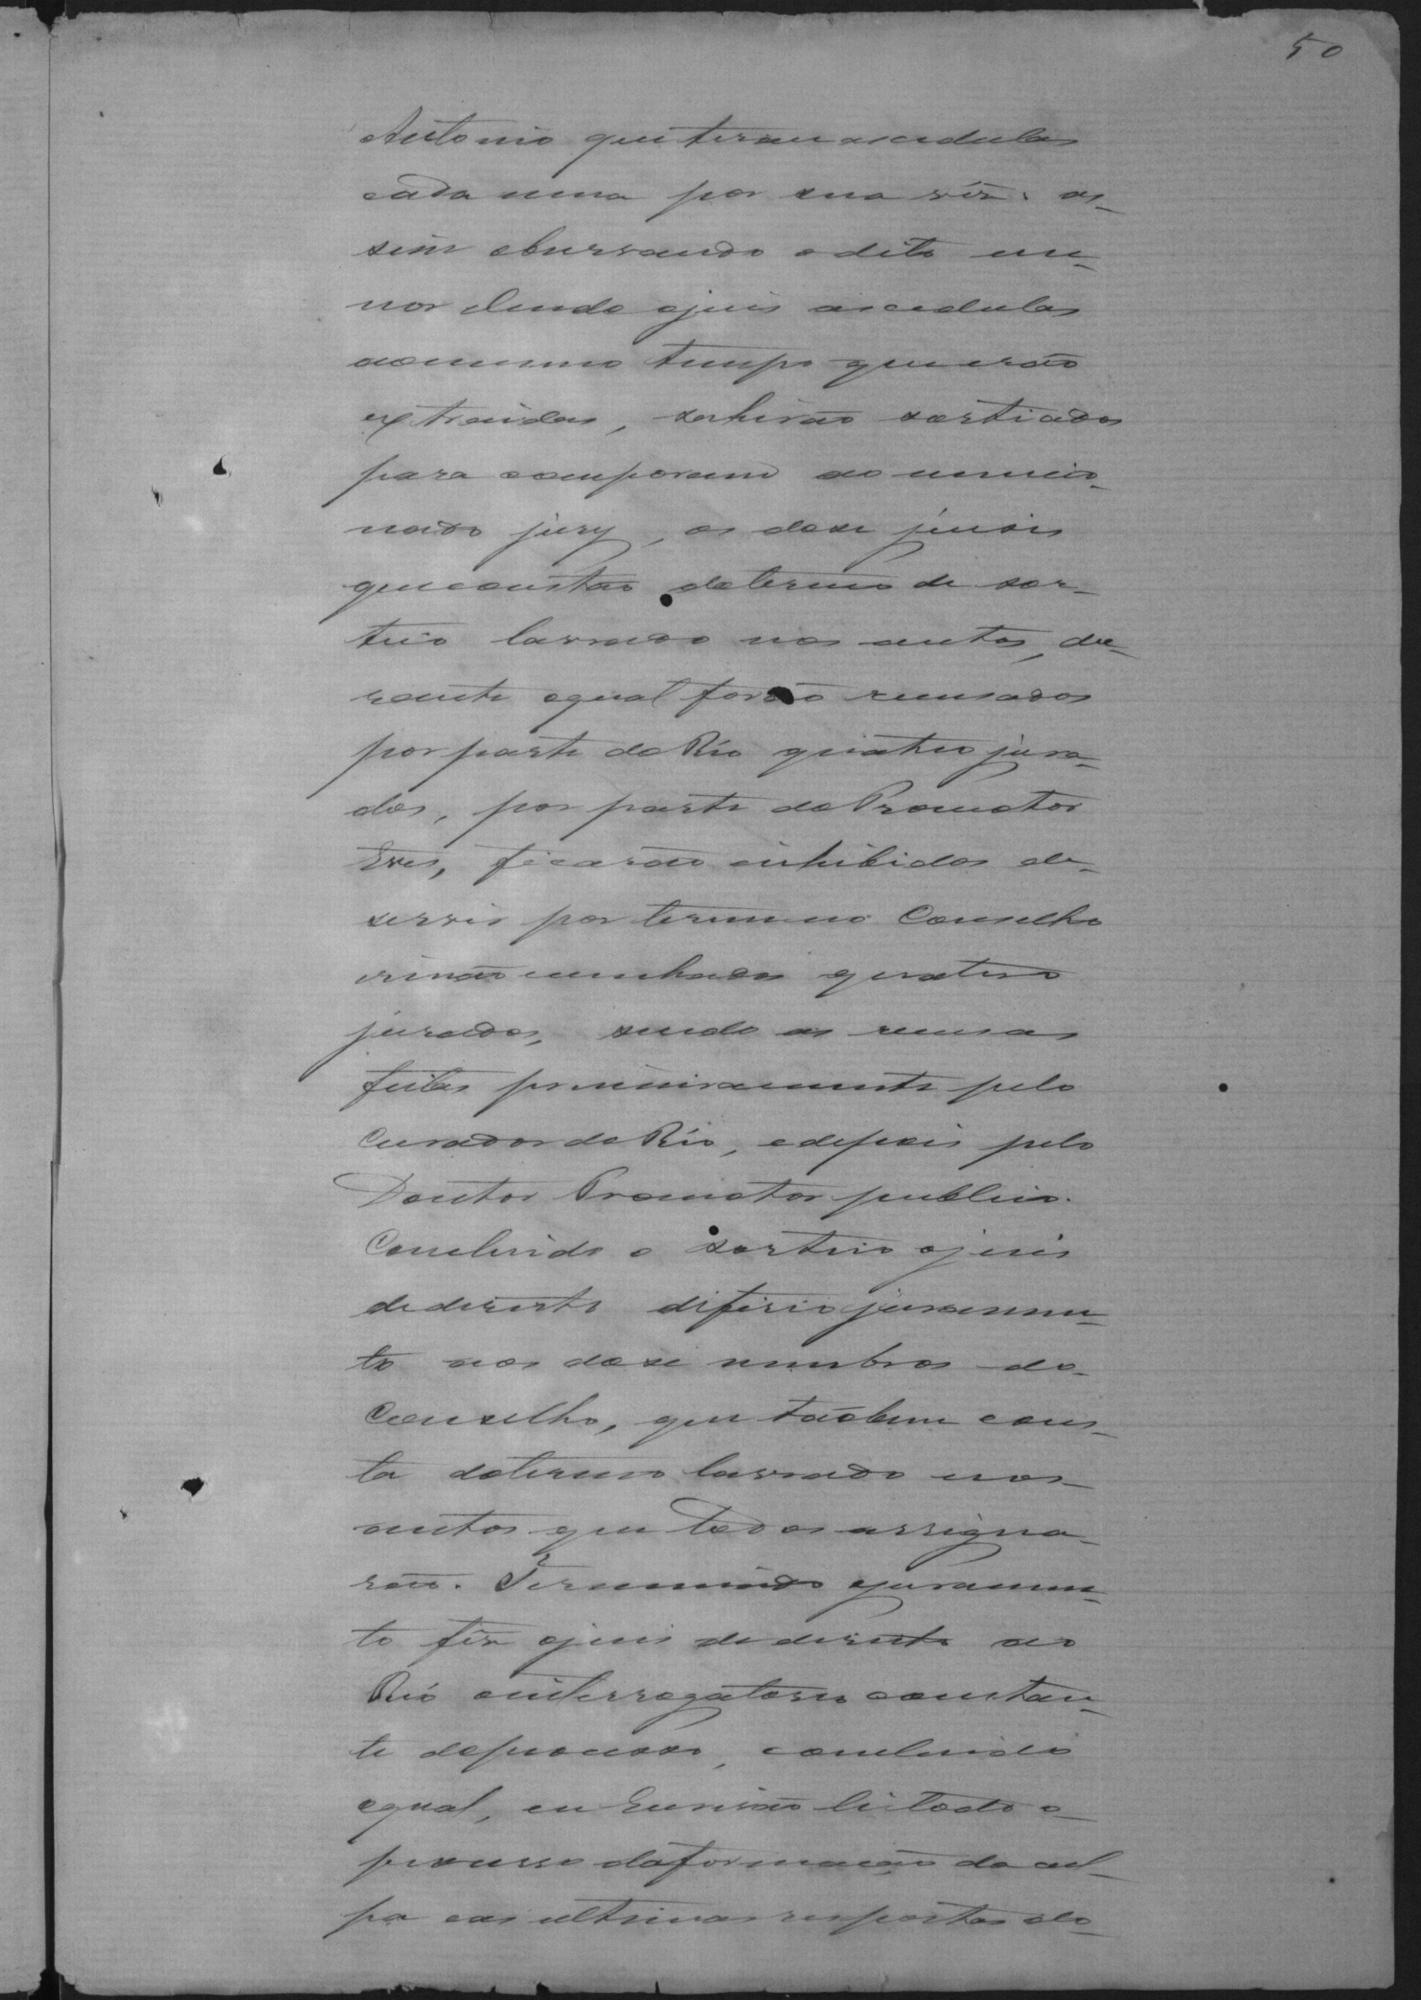 50
Antonio que tirou as cedulas
cada uma por sua vêz. as-
sim observando o dito me-
nor e lendo o juis as cedulas
ao mesmo tempo que erão
extraidas, sahirão sortiados
para comporem ao mencio-
nado jury, os dose juises
que constão do termo de sor-
teio lavrado nos autos, du-
rante o qual forão recusados
por parte do Réo quatro jura-
dos, por parte do Promotor
tres, ficarão inhibidos de
servir por terem no Conselho
irmão cunhados quatro
jurados, sendo as recusas
feitas primeiramente pelo
Curador do Réo, e depois pelo
Doutor Promotor publico.
Concluido o sorteio o juis
de direito diferio juramen-
to aos dose membros do
Conselho, que tãobem cons-
ta do termo lavrado nos
autos que todos assigna-
rão. Terminado o juramen-
to fêz o juis de direito ao
Réo o interrogatorio constan-
te do processo, concluido
o qual, eu Escrivão li todo o
processo da formação da cul-
pa e as ultimas respostas do